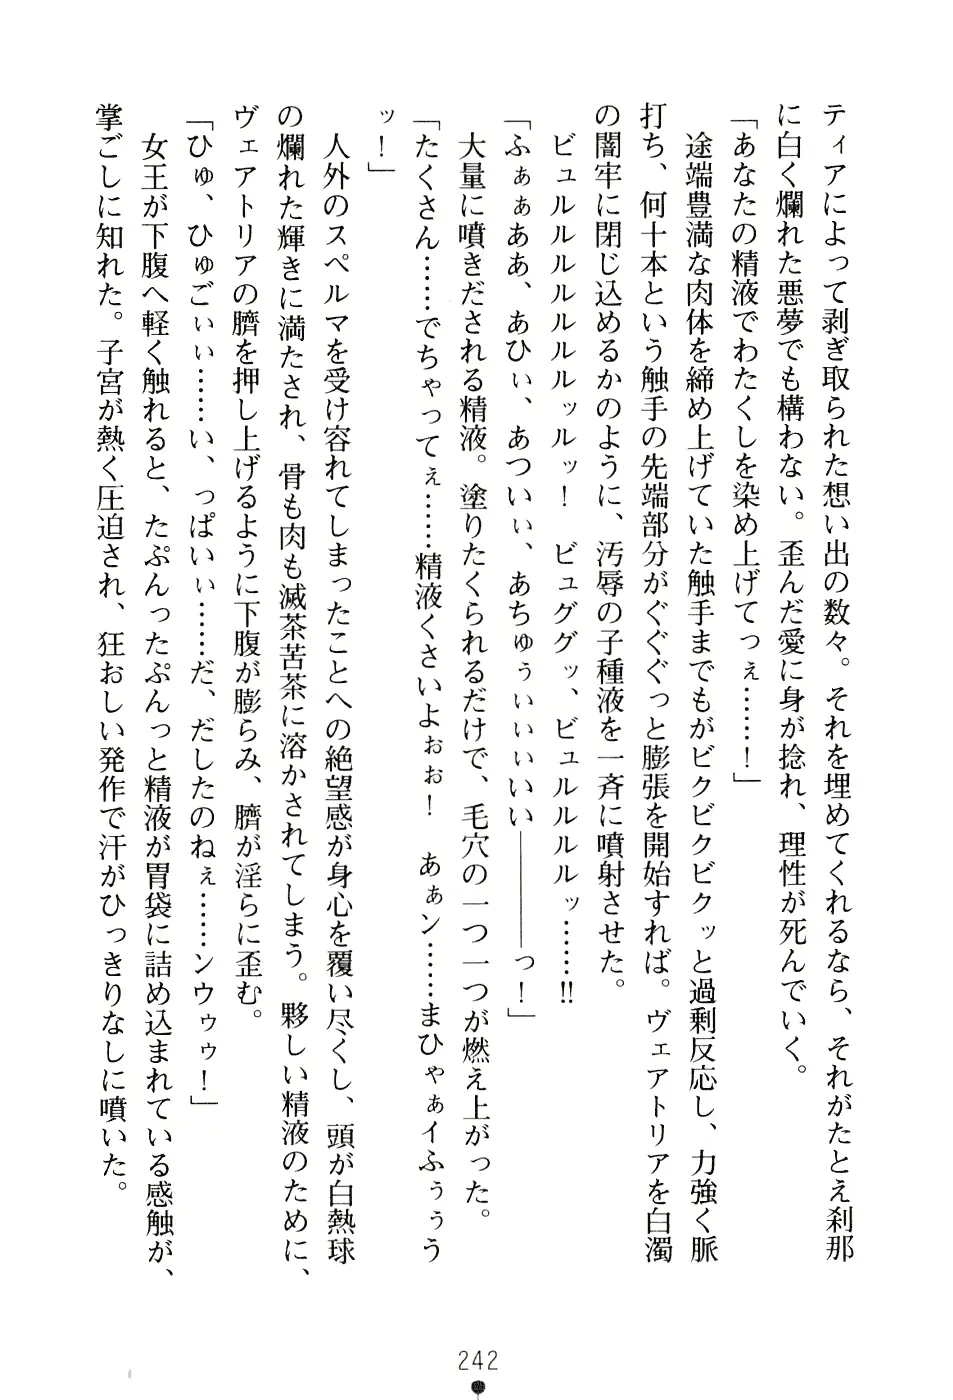 ティアによって剥ぎ取られた想い出の数々。それを埋めてくれるなら、それがたとえ刹那
に白く爛れた悪夢でも構わない。歪んだ愛に身が捻れ、理性が死んでいく。
「あなたの精液でわたくしを染め上げてっぇ……！」
途端豊満な肉体を締め上げていた触手までもがビクビクビクッと過剰反応し、力強く脈
打ち、何十本という触手の先端部分がぐぐぐっと膨張を開始すれば。ヴェアトリアを白濁
の闇牢に閉じ込めるかのように、汚辱の子種液を一斉に噴射させた。
ビュルルルルルルッルッ！　ビュググッ、ビュルルルルッ……!!
「ふぁぁああ、あひぃ、あついぃ、あちゅぅぃぃぃいい――――っ！」
大量に噴きだされる精液。塗りたくられるだけで、毛穴の一つ一つが燃え上がった。
「たくさん……でちゃってぇ……精液くさいよぉぉ！　あぁン……まひゃぁイふぅぅう
ッ！」
人外のスペルマを受け容れてしまったことへの絶望感が身心を覆い尽くし、頭が白熱球
の爛れた輝きに満たされ、骨も肉も滅茶苦茶に溶かされてしまう。夥しい精液のために、
ヴェアトリアの臍を押し上げるように下腹が膨らみ、臍が淫らに歪む。
「ひゅ、ひゅごぃぃ……い、っぱいぃ……だ、だしたのねぇ……ンウゥゥ！」
女王が下腹へ軽く触れると、たぷんったぷんっと精液が胃袋に詰め込まれている感触が、
掌ごしに知れた。子宮が熱く圧迫され、狂おしい発作で汗がひっきりなしに噴いた。
242